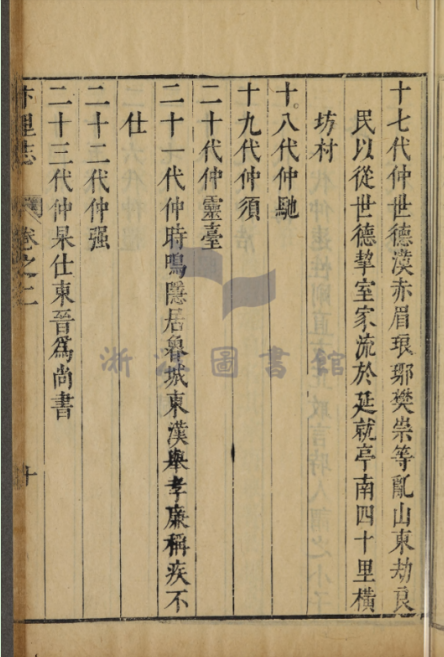 十七代仲世德漢赤眉琅琊樊崇等亂山東劫良
民以從世德挈室家流於延就亭南四十里橫
坊村
十八代仲馳
十九代仲須
二十代仲靈臺
二十一代仲時鳴隱居魯城東漢舉孝廉稱疾不
仕
二十二代仲强
二十三代仲杲仕東晉爲尚書
里志
卷之二
浙江圖書館